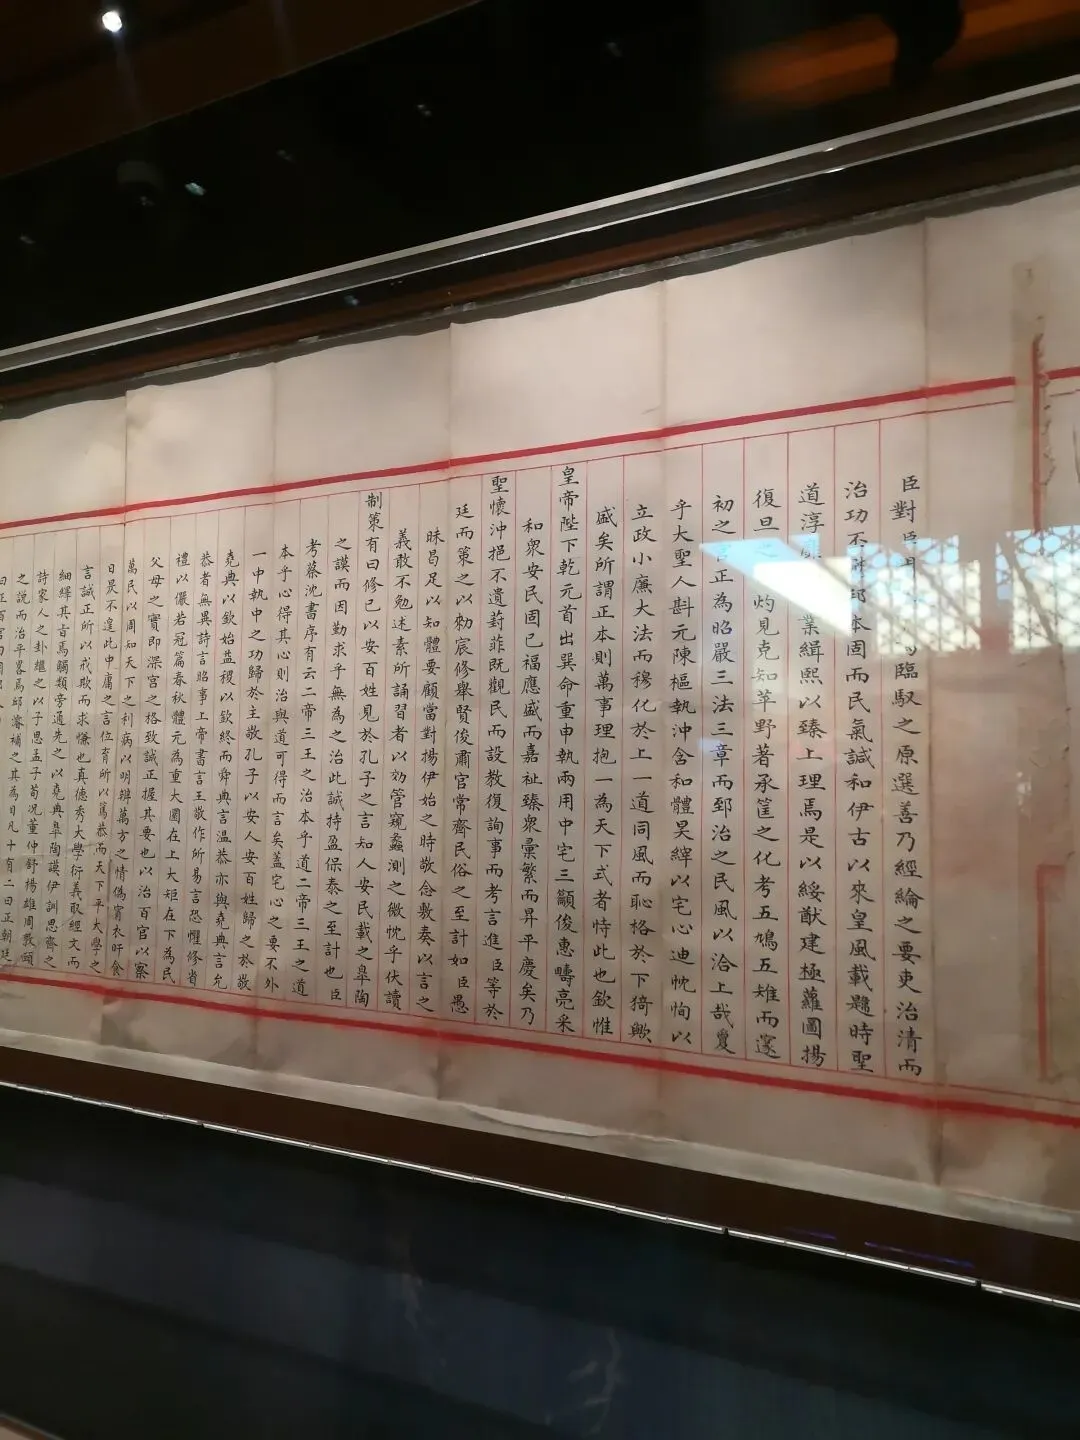 臣對臣聞 臨馭之原選善乃經綸之要吏治清而
治功丕 邦本固而民氣諴和伊古以來皇風載鬯時聖
道淳 業緝熙以臻上理焉是以綏猷建極蘿圖揚
復旦之 灼見克知苹野著承筐之化考五鳩五雉而邃
初之官正為昭嚴三法三章而郅治之民風以洽上哉敻
乎大聖人斟元陳樞執沖含和體昊縡以宅心迪忱恂以
立政小廉大法而穆化於上一道同風而恥格於下猗歟
盛矣所謂正本則萬事理抱一為天下式者恃此也欽惟
皇帝陛下乾元首出巽命重申執兩用中宅三籲俊惠疇亮采
和衆安民固已福應盛而嘉祉臻衆彙繁而昇平慶矣乃
聖懷沖挹不遺葑菲既觀民而設教復詢事而考言進臣等於
廷而策之以勑宸修舉賢俊肅官常齊民俗之至計如臣愚
昧曷足以知體要顧當對揚伊始之時敬念敷奏以言之
義敢不勉述素所誦習者以効管窺蠡測之微忱乎伏讀
制策有曰修己以安百姓見於孔子之言知人安民載之皐陶
之謨而因勤求乎無為之治此誠持盈保泰之至計也臣
考蔡沈書序有云二帝三王之治本乎道二帝三王之道
本乎心得其心則治與道可得而言矣蓋宅心之要不外
一中執中之功歸於主敬孔子以安人安百姓歸之於敬
堯典以欽始益稷以欽終而舜典言溫恭亦與堯典言允
恭者無異詩言昭事上帝書言王敬作所易言恐懼修省
禮以儼若冠篇春秋體元為重大圜在上大矩在下為民
父母之實即深宮之格致誠正握其要也以治百官以察
萬民以周知天下之利病以明辨萬方之情偽宵衣旰食
日昃不遑此中庸之言位育所以篤恭而天下平大學之
言誠正所以戒欺而求慊也真德秀大學衍義取經文而
細繹其旨焉觸類旁通先之以堯典皐陶謨伊訓思齊之
詩家人之卦繼之以子思孟子荀況董仲舒揚雄周敦頤
之說而治平畧焉邱濬補之其為目凡十有二曰正朝廷
曰正百官